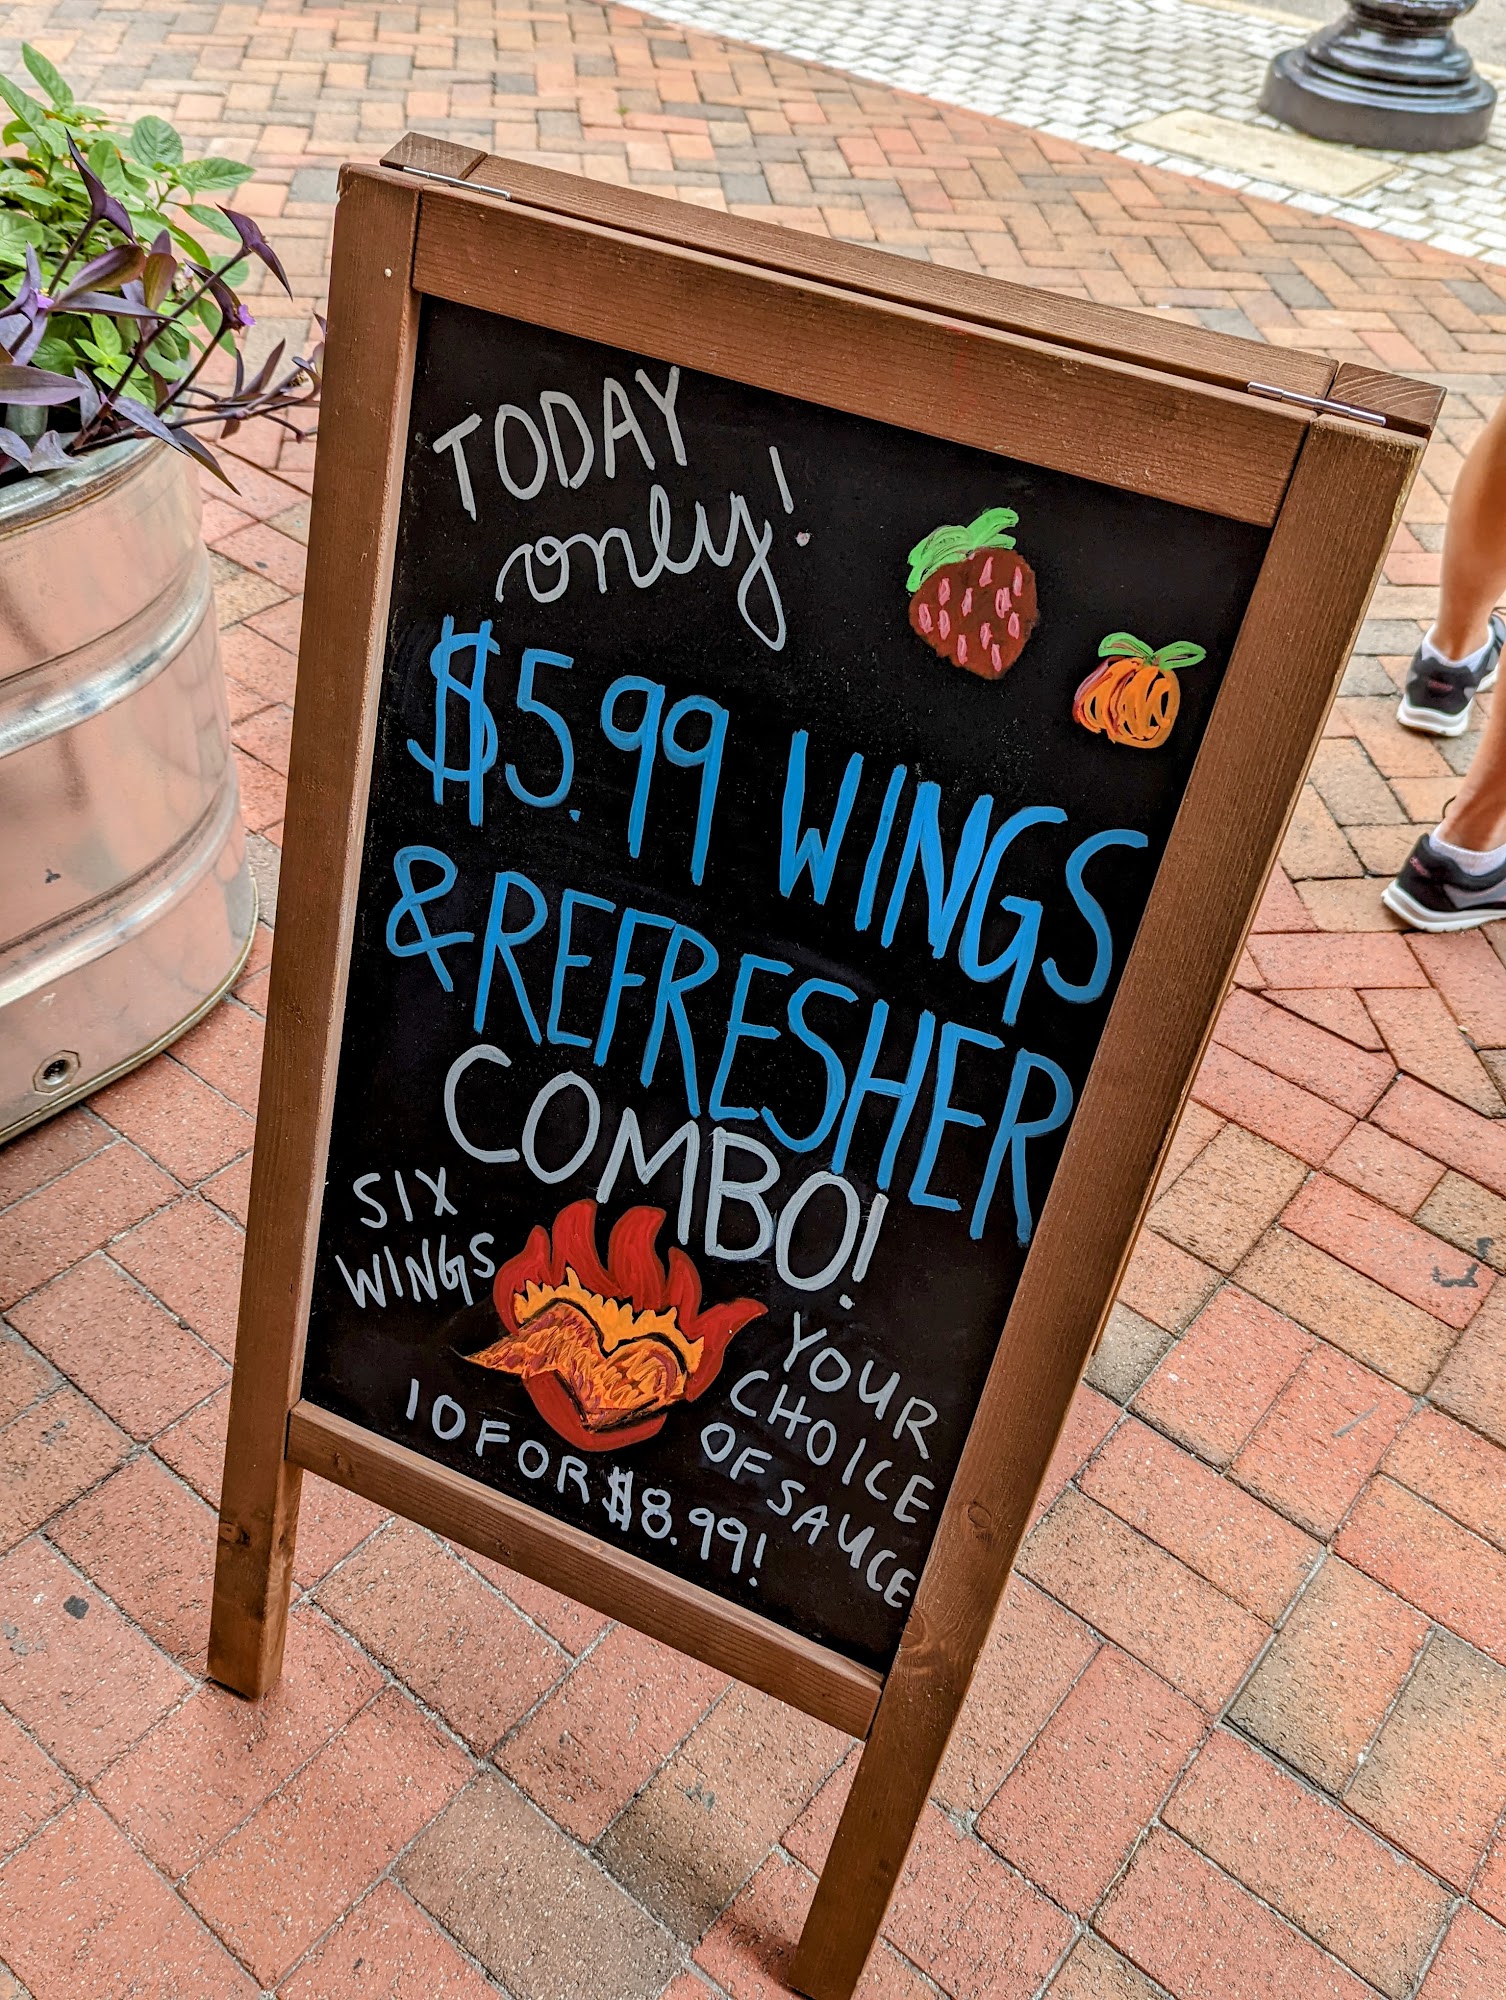 TODAY
only!
$5.99 WINGS
& REFRESHER
COMBO!
SIX
WINGS
YOUR
CHOICE
OF SAUCE
10 FOR $8.99!